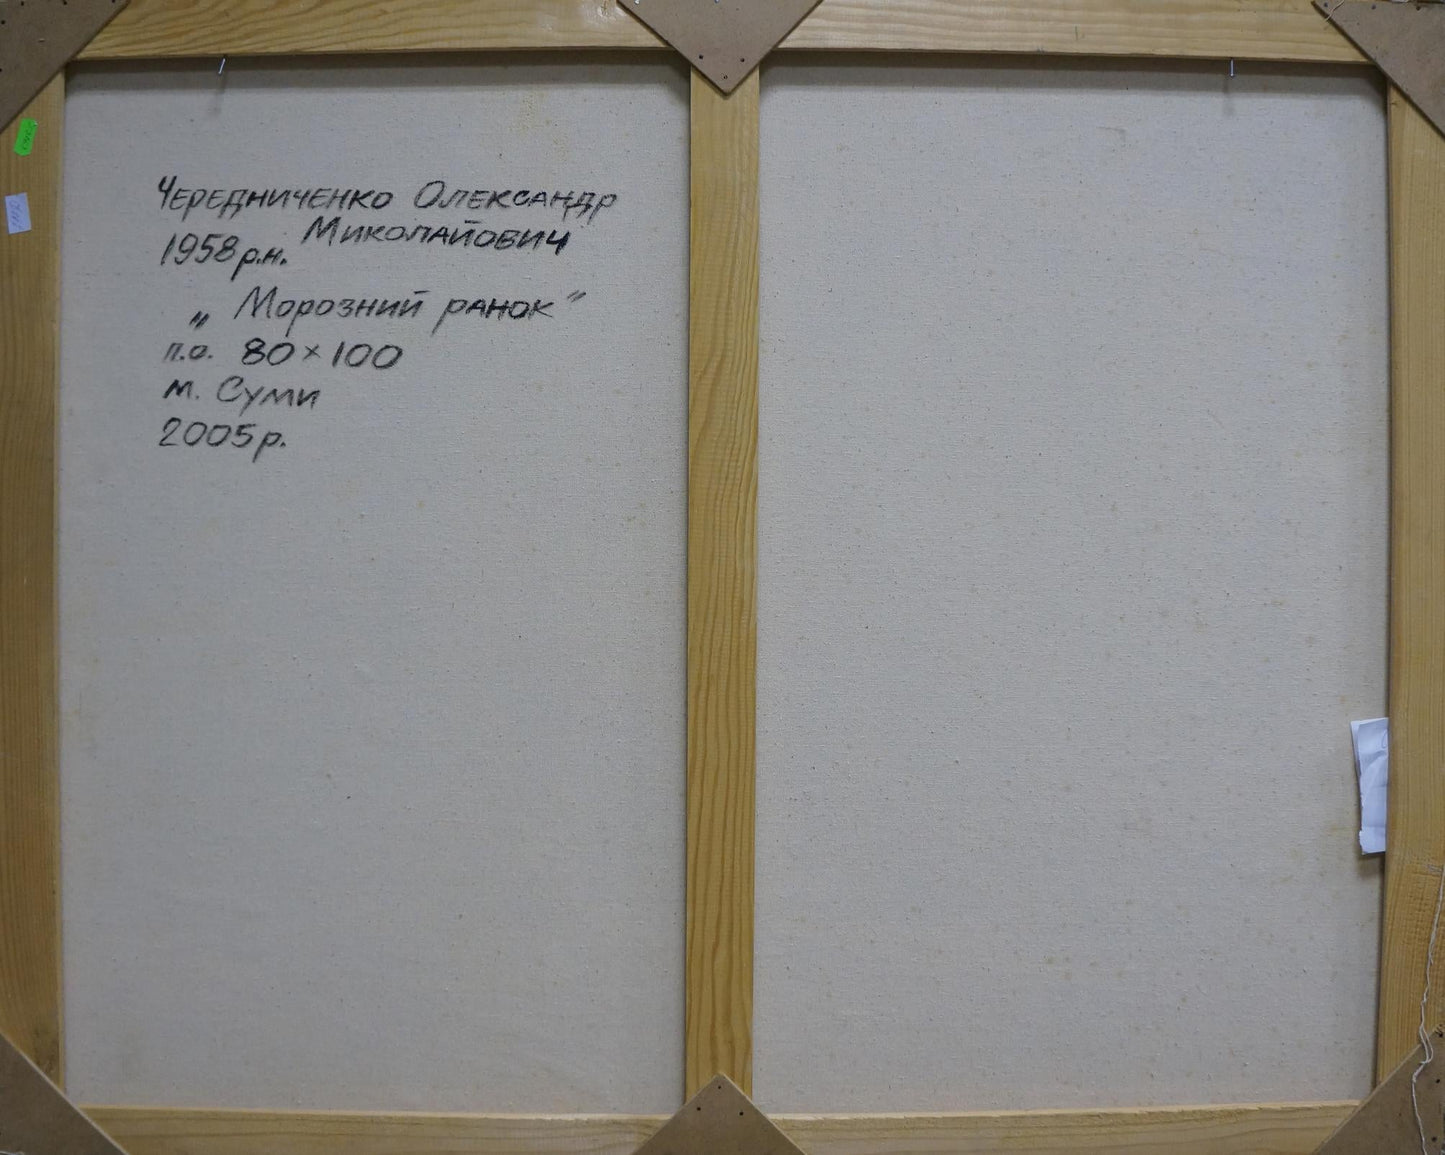 Чередниченко Олександр
Миколайович
1958р.н.
„ Морозний ранок"
п.о. 80×100
м. Суми
2005р.